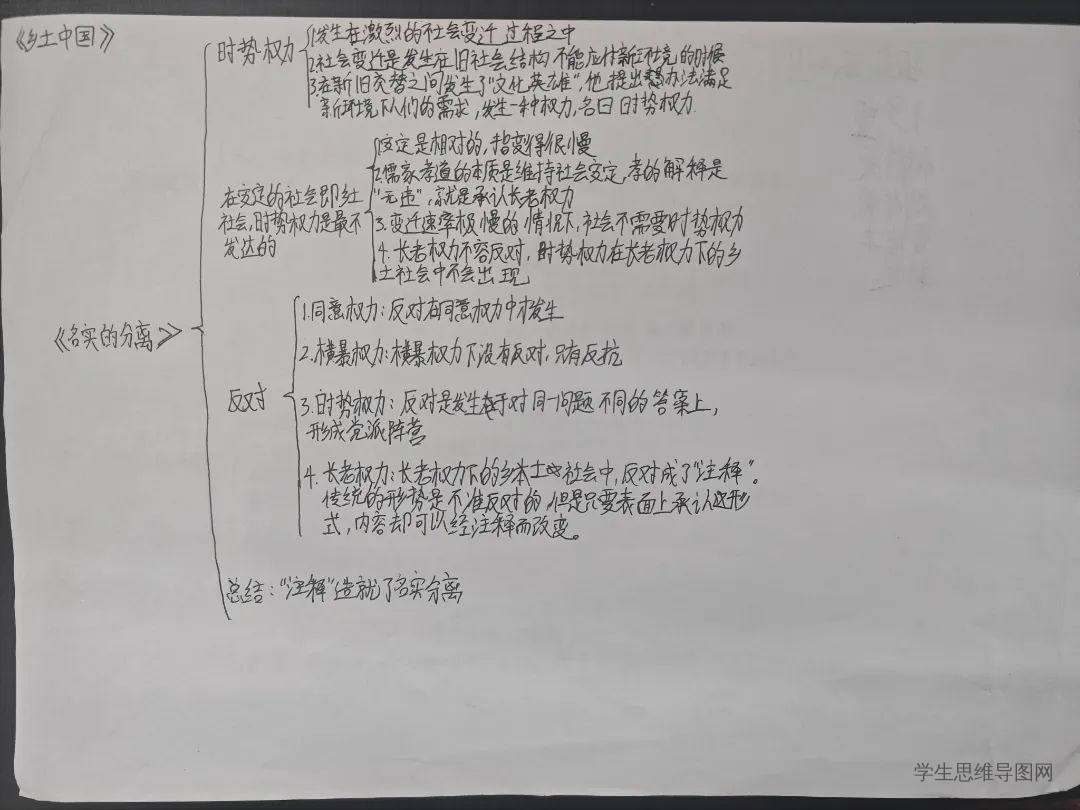 《乡土中国》
时势权力
1.发生在激烈的社会变迁过程之中
2.社会变迁是发生在旧社会结构不能应付新环境的时候
3.在新旧交替之间发生了"文化英雄",他提出想办法满足
新环境下人们的需求,发生一种权力,名曰时势权力.
在安定的社会即乡土
社会,时势权力是最不
发达的
1.安定是相对的,指变得很慢
2.儒家孝道的本质是维持社会安定,孝的解释是
"无违",就是承认长老权力
3.变迁速率极慢的情况下,社会不需要时势权力
4.长老权力不容反对,时势权力在长老权力下的乡
土社会中不会出现
《名实的分离》
反对
1.同意权力:反对在同意权力中才发生
2.横暴权力:横暴权力下没有反对,只有反抗
3.时势权力:反对是发生在于对同一问题不同的答案上,
形成党派阵营
4.长老权力:长老权力下的乡本土社会中,反对成了"注释"。
传统的形势是不准反对的,但是只要表面上承认这形
式,内容却可以经注释而改变。
总结:"注释"造就了名实分离
学生思维导图网